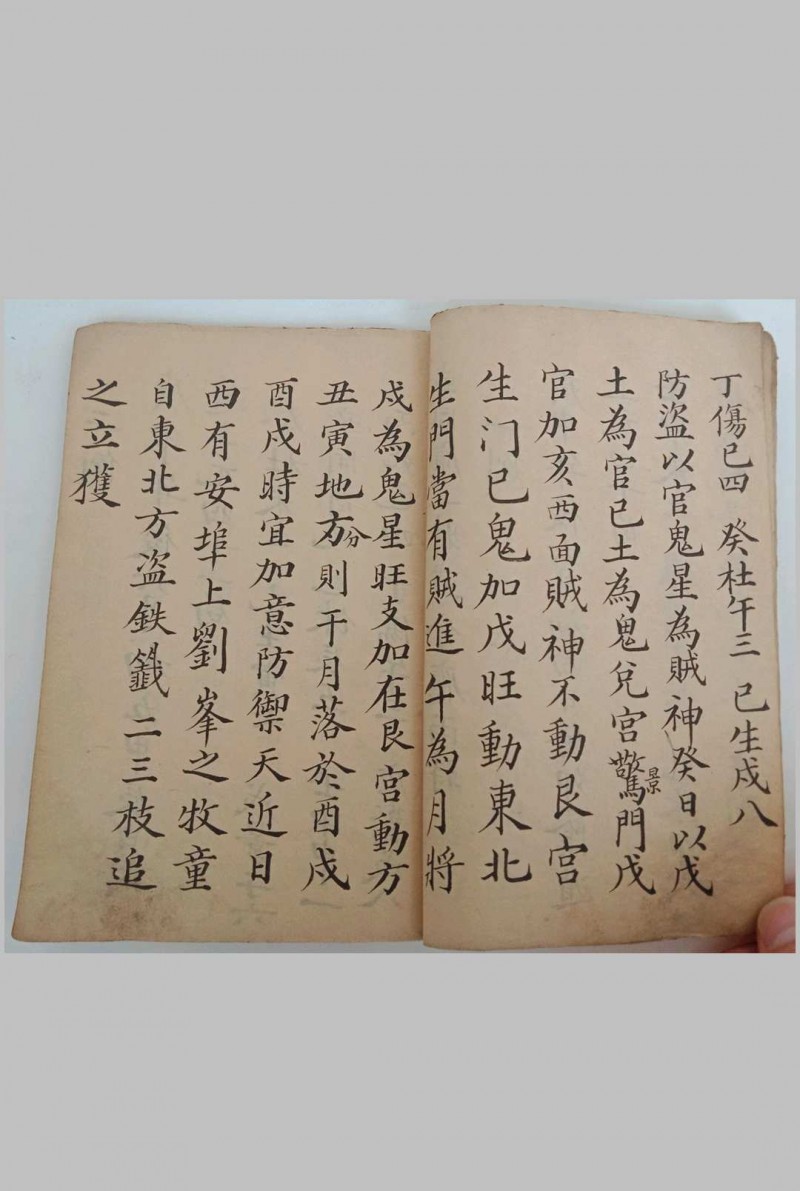 丁傷已四　癸杜午三　已生戌八
防盜以官鬼星為賊神癸日以戊
土為官已土為鬼兌宫驚景門戊
官加亥西面賊神不動艮宫
生门已鬼加戊旺動東北
生門當有賊進午為月將
戌為鬼星旺支加在艮宫動方
丑寅地方分則干月落於酉戌一
酉戌時宜加意防禦天近日
西有安埠上劉峯之牧童
自東北方盗鉄鑯二三枝追
之立獲